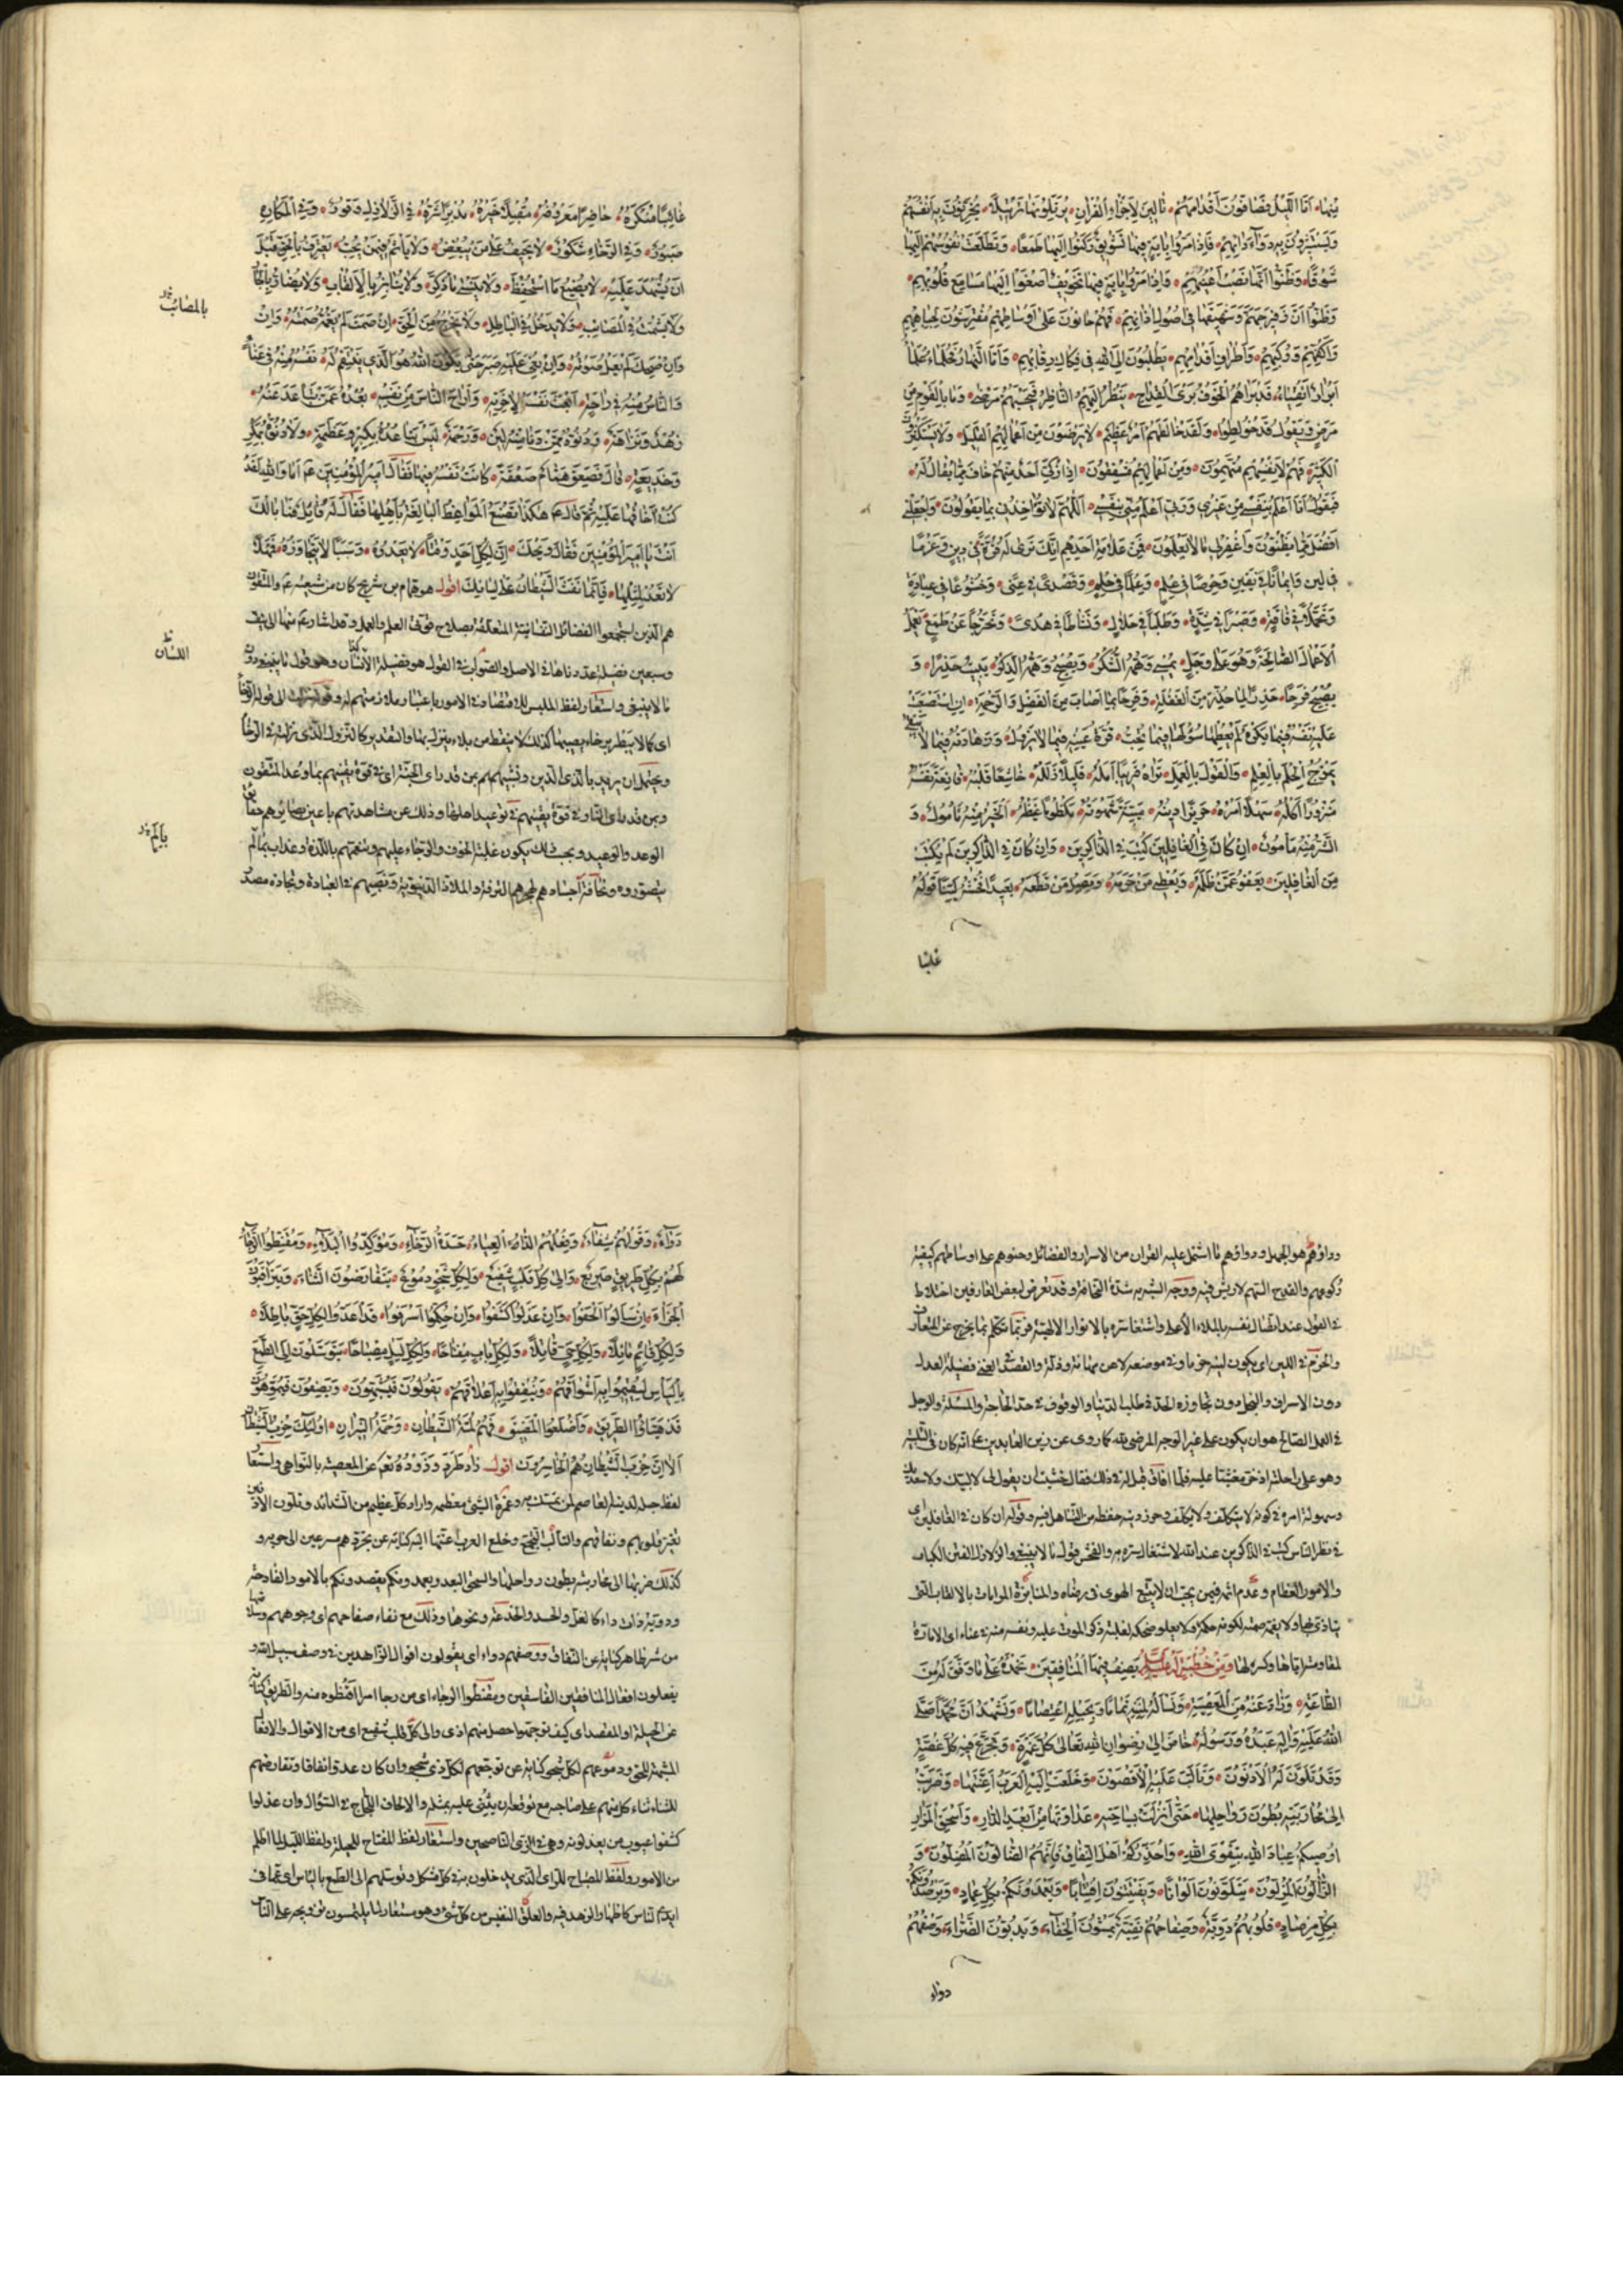 مِنْهَا، اَمَّا اللَّيْلُ فَصَافُّونَ اَقْدَامَهُمْ، تَالِينَ لِاَجْزَاءِ الْقُرْاٰنِ، يُرَتِّلُونَهَا تَرْتِيلًا، يُحَزِّنُونَ بِهِ اَنْفُسَهُمْ
وَيَسْتَثِيرُونَ بِهِ دَوَاءَ دَائِهِمْ، فَاِذَا مَرُّوا بِاٰيَةٍ فِيهَا تَشْوِيقٌ رَكَنُوا اِلَيْهَا طَمَعًا، وَتَطَلَّعَتْ نُفُوسُهُمْ اِلَيْهَا
شَوْقًا، وَظَنُّوا اَنَّهَا نُصْبَ اَعْيُنِهِمْ، وَاِذَا مَرُّوا بِاٰيَةٍ فِيهَا تَخْوِيفٌ اَصْغَوْا اِلَيْهَا مَسَامِعَ قُلُوبِهِمْ،
وَظَنُّوا اَنَّ زَفِيرَ جَهَنَّمَ وَشَهِيقَهَا فِي اُصُولِ اٰذَانِهِمْ، فَهُمْ حَانُونَ عَلٰى اَوْسَاطِهِمْ مُفْتَرِشُونَ لِجِبَاهِهِمْ
وَاَكُفِّهِمْ وَرُكَبِهِمْ، وَاَطْرَافِ اَقْدَامِهِمْ، يَطْلُبُونَ اِلَى اللّٰهِ فِي فَكَاكِ رِقَابِهِمْ، وَاَمَّا النَّهَارَ فَحُلَمَاءُ عُلَمَاءُ
اَبْرَارٌ اَتْقِيَاءُ، قَدْ بَرَاهُمُ الْخَوْفُ بَرْيَ الْقِدَاحِ، يَنْظُرُ اِلَيْهِمُ النَّاظِرُ فَيَحْسَبُهُمْ مَرْضٰى، وَمَا بِالْقَوْمِ مِنْ
مَرَضٍ وَيَقُولُ قَدْ خُولِطُوا، وَلَقَدْ خَالَطَهُمْ اَمْرٌ عَظِيمٌ، لَا يَرْضَوْنَ مِنْ اَعْمَالِهِمُ الْقَلِيلَ، وَلَا يَسْتَكْثِرُونَ
الْكَثِيرَ، فَهُمْ لِاَنْفُسِهِمْ مُتَّهِمُونَ، وَمِنْ اَعْمَالِهِمْ مُشْفِقُونَ، اِذَا زُكِّيَ اَحَدٌ مِنْهُمْ خَافَ مِمَّا يُقَالُ لَهُ،
فَيَقُولُ اَنَا اَعْلَمُ بِنَفْسِي مِنْ غَيْرِي وَرَبِّي اَعْلَمُ مِنِّي بِنَفْسِي، اَللّٰهُمَّ لَا تُؤَاخِذْنِي بِمَا يَقُولُونَ، وَاجْعَلْنِي
اَفْضَلَ مِمَّا يَظُنُّونَ وَاغْفِرْ لِي مَا لَا يَعْلَمُونَ، فَمِنْ عَلَامَةِ اَحَدِهِمْ اَنَّكَ تَرٰى لَهُ قُوَّةً فِي دِينٍ وَحَزْمًا
فِي لِينٍ وَاِيمَانًا فِي يَقِينٍ وَحِرْصًا فِي عِلْمٍ، وَعِلْمًا فِي حِلْمٍ، وَقَصْدًا فِي غِنًى، وَخُشُوعًا فِي عِبَادَةٍ
وَتَجَمُّلًا فِي فَاقَةٍ، وَصَبْرًا فِي شِدَّةٍ، وَطَلَبًا فِي حَلَالٍ، وَنَشَاطًا فِي هُدًى، وَتَحَرُّجًا عَنْ طَمَعٍ، يَعْمَلُ
الْاَعْمَالَ الصَّالِحَةَ وَهُوَ عَلٰى وَجَلٍ، يُمْسِي وَهَمُّهُ الشُّكْرُ، وَيُصْبِحُ وَهَمُّهُ الذِّكْرُ، يَبِيتُ حَذِرًا، وَ
يُصْبِحُ فَرِحًا، حَذِرًا لِمَا حَذِرَ مِنَ الْغَفْلَةِ، وَفَرِحًا بِمَا اَصَابَ مِنَ الْفَضْلِ وَالرَّحْمَةِ، اِنِ اسْتَصْعَبَتْ
عَلَيْهِ نَفْسُهُ فِيمَا تَكْرَهُ لَمْ يُعْطِهَا سُؤْلَهَا فِيمَا تُحِبُّ، قُرَّةُ عَيْنِهِ فِيمَا لَا يَزُولُ، وَزَهَادَتُهُ فِيمَا لَا يَبْقٰى
يَمْزُجُ الْحِلْمَ بِالْعِلْمِ، وَالْقَوْلَ بِالْعَمَلِ، تَرَاهُ قَرِيبًا اَمَلُهُ، قَلِيلًا زَلَلُهُ، خَاشِعًا قَلْبُهُ، قَانِعَةً نَفْسُهُ
مَنْزُورًا اَكْلُهُ، سَهْلًا اَمْرُهُ، حَرِيزًا دِينُهُ، مَيِّتَةً شَهْوَتُهُ، مَكْظُومًا غَيْظُهُ، اَلْخَيْرُ مِنْهُ مَأْمُولٌ، وَ
الشَّرُّ مِنْهُ مَأْمُونٌ، اِنْ كَانَ فِي الْغَافِلِينَ كُتِبَ فِي الذَّاكِرِينَ، وَاِنْ كَانَ فِي الذَّاكِرِينَ لَمْ يُكْتَبْ
مِنَ الْغَافِلِينَ، يَعْفُو عَمَّنْ ظَلَمَهُ، وَيُعْطِي مَنْ حَرَمَهُ، وَيَصِلُ مَنْ قَطَعَهُ، بَعِيدًا فُحْشُهُ لَيِّنًا قَوْلُهُ
غائبا
غَائِبًا مُنْكَرُهُ، حَاضِرًا مَعْرُوفُهُ، مُقْبِلًا خَيْرُهُ، مُدْبِرًا شَرُّهُ، فِي الزَّلَازِلِ وَقُورٌ، وَفِي الْمَكَارِهِ
صَبُورٌ، وَفِي الرَّخَاءِ شَكُورٌ، لَا يَحِيفُ عَلٰى مَنْ يُبْغِضُ، وَلَا يَأْثَمُ فِيمَنْ يُحِبُّ، يَعْتَرِفُ بِالْحَقِّ قَبْلَ
اَنْ يُشْهَدَ عَلَيْهِ، لَا يُضِيعُ مَا اسْتُحْفِظَ، وَلَا يَنْسٰى مَا ذُكِّرَ، وَلَا يُنَابِزُ بِالْاَلْقَابِ، وَلَا يُضَارُّ بِالْجَارِ
وَلَا يَشْمَتُ فِي الْمَصَائِبِ، وَلَا يَدْخُلُ فِي الْبَاطِلِ، وَلَا يَخْرُجُ مِنَ الْحَقِّ، اِنْ صَمَتَ لَمْ يَغُمَّهُ صَمْتُهُ، وَاِنْ
بالمصائب
وَاِنْ ضَحِكَ لَمْ يَعْلُ صَوْتُهُ، وَاِنْ بُغِيَ عَلَيْهِ صَبَرَ حَتّٰى يَكُونَ اللّٰهُ هُوَ الَّذِي يَنْتَقِمُ لَهُ، نَفْسُهُ مِنْهُ فِي عَنَاءٍ
وَالنَّاسُ مِنْهُ فِي رَاحَةٍ، اَتْعَبَ نَفْسَهُ لِاٰخِرَتِهِ، وَاَرَاحَ النَّاسَ مِنْ نَفْسِهِ، بُعْدُهُ عَمَّنْ تَبَاعَدَ عَنْهُ،
زُهْدٌ وَنَزَاهَةٌ، وَدُنُوُّهُ مِمَّنْ دَنَا مِنْهُ لِينٌ، وَرَحْمَةٌ، لَيْسَ تَبَاعُدُهُ بِكِبْرٍ وَعَظَمَةٍ، وَلَا دُنُوُّهُ بِمَكْرٍ
وَخَدِيعَةٍ، قَالَ فَصَعِقَ هَمَّامٌ صَعْقَةً، كَانَتْ نَفْسُهُ فِيهَا فَقَالَ اَمِيرُ الْمُؤْمِنِينَ عم اَمَا وَاللّٰهِ لَقَدْ
كُنْتُ اَخَافُهَا عَلَيْهِ ثُمَّ قَالَ هٰكَذَا تَصْنَعُ الْمَوَاعِظُ الْبَالِغَةُ بِاَهْلِهَا فَقَالَ لَهُ قَائِلٌ فَمَا بَالُكَ
اَنْتَ يَا اَمِيرَ الْمُؤْمِنِينَ فَقَالَ وَيْحَكَ، اِنَّ لِكُلِّ اَجَلٍ وَقْتًا، لَا يَعْدُوهُ، وَسَبَبًا لَا يَتَجَاوَزُهُ، فَمَهْلًا
لَا تَعُدْ لِمِثْلِهَا، فَاِنَّمَا نَفَثَ الشَّيْطَانُ عَلٰى لِسَانِكَ اقول هو همام بن شريح كان من شيعته عم والمتقون
هم الذين استجمعوا الفضائل النفسانية المتعلقة بصلاح قوتى العلم والعمل وقد اشار عم منها الى نيف
وسبعين فضيلة عددناها فى الاصل والصواب فى القول هو فضيلة اللسان وهو قول ما ينبغى دون
اللسان
ما لا ينبغى واستعار لفظ الملبس للاقتصاد فى الامور باعتبار ملازمتهم له وقوله نزلت الى قوله الرخاء
اى كما لا تبطر برخاء يصيبها كذلك لا تقنط من بلاء ينزل بها والتقدير كالنزول الذى نزلته فى الرخاء
ويحتمل ان يريد بالذى الذين وشبههم بمن قد راى الجنة اى فى قوة يقينهم بما وعد المتقون
وبمن قد راى النار فى قوة يقينهم بتوعيد اهلها وذلك عن مشاهدتهم باعين بصائرهم حقائق
الوعد والوعيد وبحسب ذلك يكون غلبة الخوف والرجاء عليهم وتنعمهم باللذة وعذاب بالم
بالم
يتصوروه ونحافة اجسادهم لهجرهم الترفه والملاذ الدنيوية وتعبهم فى العبادة وتجارة مصدر
ودواؤهم هو الجهل ودواؤهم ما اشتمل عليه القران من الاسرار والفضائل وحنوهم على اوساطهم كيفية
ركوعهم والقدح السهم لا ريش فيه ووجه الشبه شدة النحافة وقد تعرض لبعض العارفين اختلاط
فى القول عند اتصال نفسه بالملاء الاعلى واشتغاله بالانوار الالهية فربما تكلم بما يخرج عن المتعارف
والحزم فى اللين اى يكون لينه حزما وفى موضعه لا عن مهانة وذلة والقصد فى الغنى فضيلة العدل
دون الاسراف والبخل دون تجاوزه الحد فى طلب الدنيا والوقوف على حد الحاجة والمسئلة والوجل
فى العمل الصالح هو ان يكون على غير الوجه المرضى لله كما روى عن زين العابدين عم انه كان فى التلبية
وهو على راحلته اذ خر مغشيا عليه فلما افاق قيل له فى ذلك فقال خشيت ان يقول لى لا لبيك ولا سعديك
وسهولة امره فى كونه لا يتكلف ولا يكلف وحرز دينه حفظه من التساهل فيه وقوله ان كان فى الغافلين اى
فى نظر الناس كتب فى الذاكرين عند الله لاشتغال سره به والفحش قول ما لا ينبغى والزلازل الفتن الكبار
والامور العظام وعدم اثمه فيمن يحب ان لا يتبع الهوى فى رضاه والمنابزة المرامات بالالقاب التى
يتاذى بها ولا يغمه صمته لكونه حكمة ولا يعلو ضحكه لغلبة ذكر الموت عليه ونفسه منه فى عناء اى الامارة
لمقاومته اياها وكسره لها وَمِنْ خُطْبَةٍ لَهُ عَلَيْهِ السَّلَامُ يَصِفُ فِيهَا الْمُنَافِقِينَ، نَحْمَدُهُ عَلٰى مَا وَفَّقَ لَهُ مِنَ
الطَّاعَةِ، وَذَادَ عَنْهُ مِنَ الْمَعْصِيَةِ، وَنَسْأَلُهُ لِمِنَّتِهِ تَمَامًا وَبِحَبْلِهِ اعْتِصَامًا، وَنَشْهَدُ اَنَّ مُحَمَّدًا صَلَّى
اللّٰهُ عَلَيْهِ وَاٰلِهِ عَبْدُهُ وَرَسُولُهُ، خَاضَ اِلٰى رِضْوَانِ اللّٰهِ تَعَالٰى كُلَّ غَمْرَةٍ، وَتَجَرَّعَ فِيهِ كُلَّ غُصَّةٍ
وَقَدْ تَلَوَّنَ لَهُ الْاَدْنَوْنَ، وَتَأَلَّبَ عَلَيْهِ الْاَقْصَوْنَ، وَخَلَعَتْ اِلَيْهِ الْعَرَبُ اَعِنَّتَهَا، وَضَرَبَتْ
اِلٰى مُحَارَبَتِهِ بُطُونَ رَوَاحِلِهَا، حَتّٰى اَنْزَلَتْ بِسَاحَتِهِ، عَدَاوَتَهَا مِنْ اَبْعَدِ الدَّارِ، وَاَسْحَقِ الْمَزَارِ
اُوصِيكُمْ عِبَادَ اللّٰهِ بِتَقْوَى اللّٰهِ، وَاُحَذِّرُكُمْ اَهْلَ النِّفَاقِ فَاِنَّهُمُ الضَّالُّونَ الْمُضِلُّونَ، وَ
الزَّالُّونَ الْمُزِلُّونَ، يَتَلَوَّنُونَ اَلْوَانًا، وَيَفْتَنُّونَ افْتِنَانًا، وَيَعْمِدُونَكُمْ بِكُلِّ عِمَادٍ، وَيَرْصُدُونَكُمْ
بِكُلِّ مِرْصَادٍ، قُلُوبُهُمْ دَوِيَّةٌ، وَصِفَاحُهُمْ نَقِيَّةٌ، يَمْشُونَ الْخَفَاءَ، وَيَدِبُّونَ الضَّرَاءَ، وَصْفُهُمْ
دواء
دَوَاءٌ، وَقَوْلُهُمْ شِفَاءٌ، وَفِعْلُهُمُ الدَّاءُ الْعَيَاءُ، حَسَدَةُ الرَّخَاءِ، وَمُؤَكِّدُوا الْبَلَاءِ، وَمُقْنِطُوا الرَّجَاءِ
لَهُمْ بِكُلِّ طَرِيقٍ صَرِيعٌ، وَاِلٰى كُلِّ قَلْبٍ شَفِيعٌ، وَلِكُلِّ شَجْوٍ دُمُوعٌ، يَتَقَارَضُونَ الثَّنَاءَ، وَيَتَرَاقَبُونَ
الْجَزَاءَ، اِنْ سَأَلُوا اَلْحَفُوا، وَاِنْ عَذَلُوا كَشَفُوا، وَاِنْ حَكَمُوا اَسْرَفُوا، قَدْ اَعَدُّوا لِكُلِّ حَقٍّ بَاطِلًا،
وَلِكُلِّ قَائِمٍ مَائِلًا، وَلِكُلِّ حَيٍّ قَاتِلًا، وَلِكُلِّ بَابٍ مِفْتَاحًا، وَلِكُلِّ لَيْلٍ مِصْبَاحًا، يَتَوَصَّلُونَ اِلَى الطَّمَعِ
بِالْيَأْسِ لِيُقِيمُوا بِهِ اَسْوَاقَهُمْ، وَيُنْفِقُوا بِهِ اَعْلَاقَهُمْ، يَقُولُونَ فَيُشَبِّهُونَ، وَيَصِفُونَ فَيُمَوِّهُونَ
قَدْ هَيَّئُوا الطَّرِيقَ، وَاَضْلَعُوا الْمَضِيقَ، فَهُمْ لُمَةُ الشَّيْطَانِ، وَحُمَةُ النِّيرَانِ، اُولٰئِكَ حِزْبُ الشَّيْطَانِ
اَلَا اِنَّ حِزْبَ الشَّيْطَانِ هُمُ الْخَاسِرُونَ اقول ذاد طرد وذوده تعالى عن المعصية بالنواهى واستعار
لفظ حبله لدينه العاصم لمن تمسك به وغمرة الشئ معظمه واراد كل عظيم من الشدائد وتلون الادنين
تغير قلوبهم ونفاقهم والتالب التجمع وخلع العرب اعنتها اليه كناية عن خروجهم مسرعين الى حربه و
كذلك ضربها الى محاربته بطون رواحلها والسحق البعد ويعمدونكم يقصدونكم بالامور الفادحة
ودوية ذات داء كالغل والحسد والخدعة ونحوها وذلك مع نقاء صفاحهم اى وجوههم وسلامتها
من شر ظاهر كناية عن النفاق ووصفهم دواء اى يقولون اقوال الزاهدين فى وصف سبيل الله و
يفعلون افعال المنافقين الفاسقين ومقنطوا الرجاء اى من رجا امرا اقنطوه منه والطريق كناية
عن الحيلة او المقصد اى كيف توجهوا حصل منهم اذى والى كل قلب شفيع اى من الاقوال والافعال
المشبهة للحق ودموعهم لكل شجو كناية عن توجعهم لكل ذى شجو وان كان عدوا نفاقا وتقارضهم
للثناء ثناء كل منهم على صاحبه مع توقع ان يثنى عليه بمثله والالحاف اللجاج فى السؤال وان عذلوا
كشفوا عيوب من يعذلونه وهى الزى الناصحين واستعار لفظ المفتاح للحيلة ولفظ الليل لما اظلم
من الامور ولفظ المصباح للراى الذى يدخلون به فى كل مشكل وتوصلهم الى الطمع بالياس اى عما فى
ايدى الناس كاظهار الزهد فيه والعلق النفيس من كل شئ وهو مستعار لما يلتمسون نفوقه على الناس